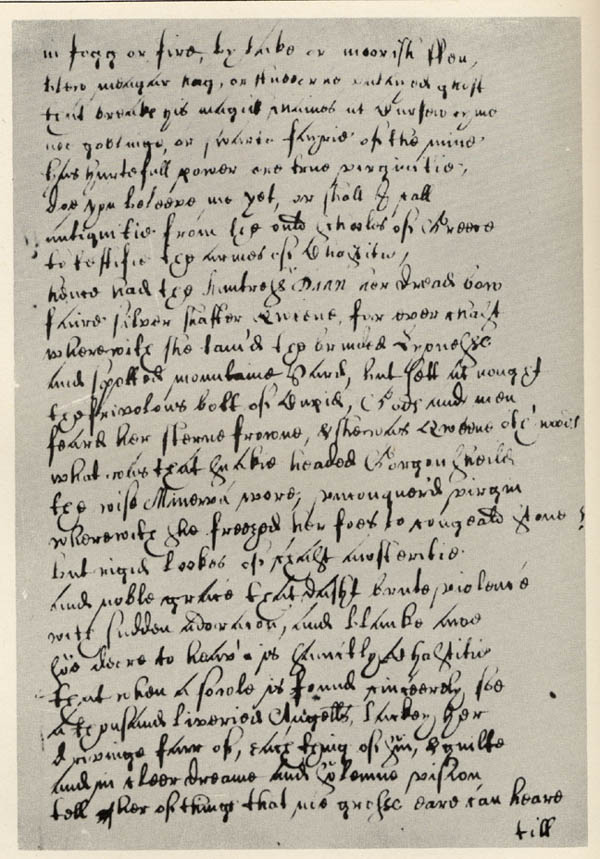 in fogg or fire, by lake or moorish fen,
blew meagar hag, or stubborne unlayed ghost
that breaks his magick chaines at Curfew tyme
noe goblinge, or swarte fayrie of the mine
has hurtefull power ore true virginitie,
doe you beleeve me yet, or shall I call
antiquitie from the ould schooles of Greece
to testifie the armes of Chastitie,
hence had the huntresse Dian her dread bow
faire silver shafted Queene, for ever chast
wherewith she tam'd the brinded Lyonesse
and spotted mountaine Pard, but sett at nought
the frivolous bolt of Cupid, Gods and men
feard her sterne frowne, & she was Queene oth' woods
what was that snakie headed Gorgon sheild
the wise Minerva wore, unconquer'd virgin
wherewith she freezed her foes to congeald stone?
but rigid lookes of chast austeritie
and noble grace that dasht brute violence
with sudden adoracon, and blanke awe
Soe deere to heav'n is saintly Chastitie
that when a soule is found sinceerely soe
a thousand liveried Angells, lackey her
drivinge farr of, each thing of sin, & guilte
and in cleer dreame and solemne vision
tell her of things that noe grosse eare can heare
till